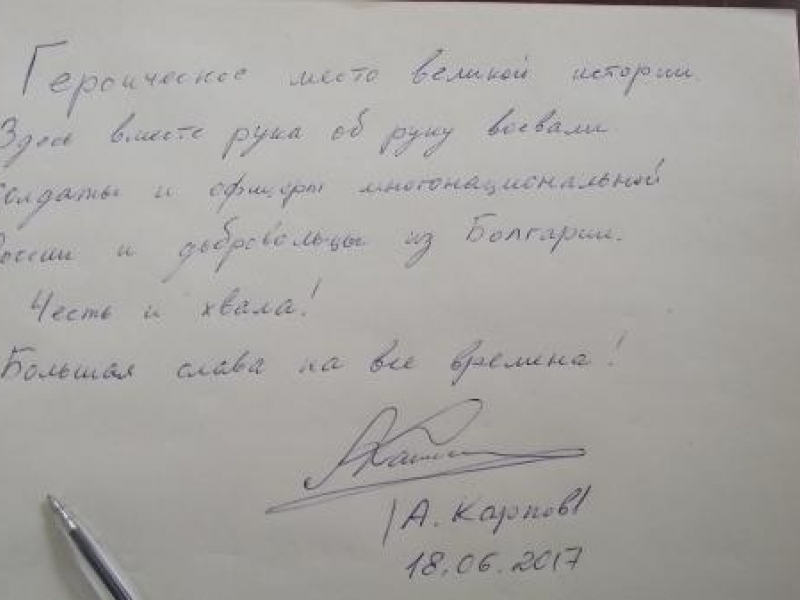 Героическое место великой истории.
Здесь вместе рука об руку воевали
солдаты и офицеры многонациональной
России и добровольцы из Болгарии.
Честь и хвала!
Большая слава на все времена!
/А. Карпов/
18.06.2017